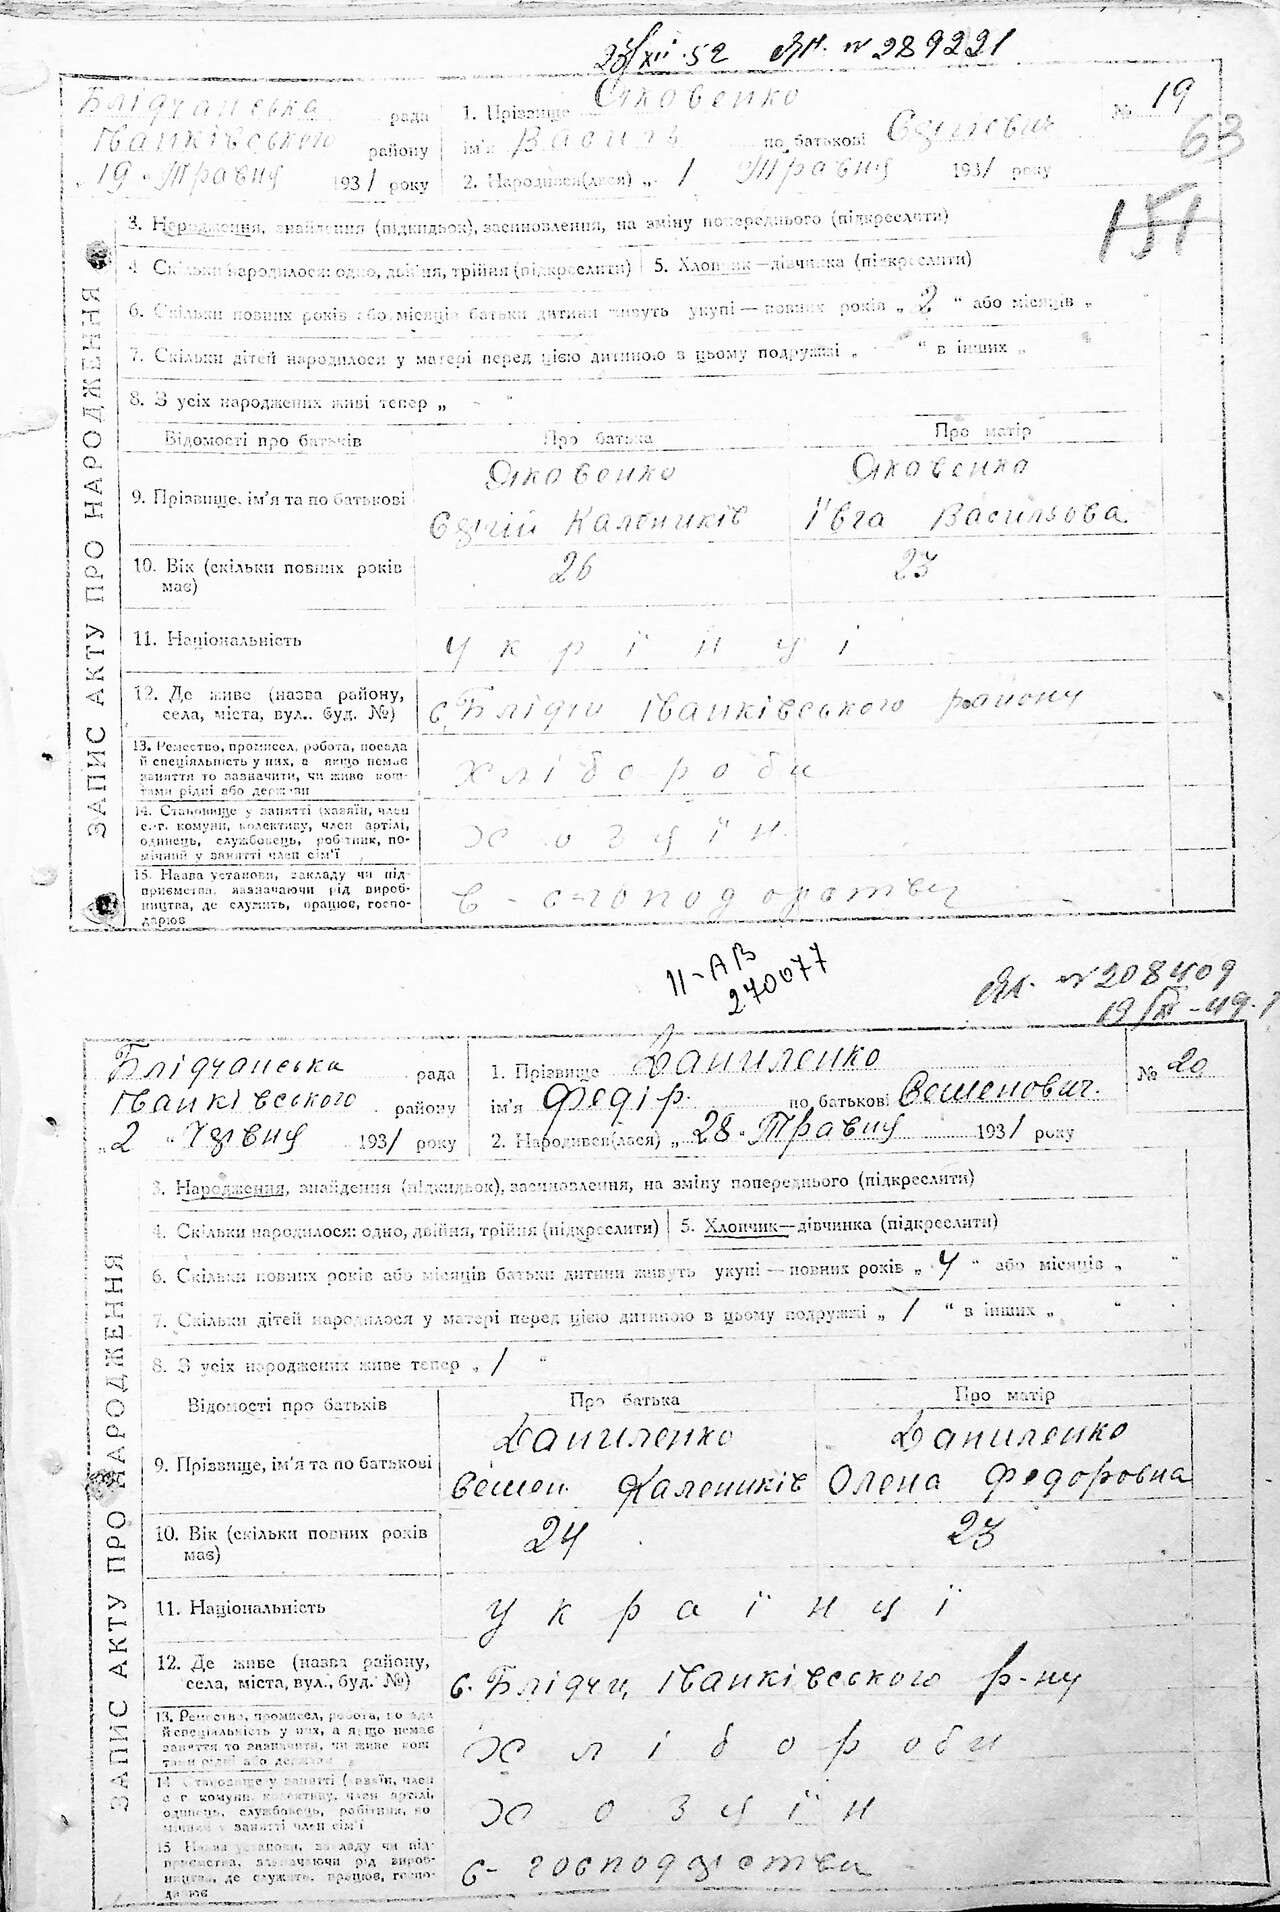 23/XII 52 Ян. № 289221
Блідчанська рада
Іванківського району
„19 "Травня 1931 року
1. Прізвище Яковенко
ім'я Василь по батькові
2. Народився(лася) „ 1 Травня 1931 року
№ 19
63
151
ЗАПИС АКТУ ПРО НАРОДЖЕННЯ
3. Народження, знайдення (підкидьок), засиновлення, на зміну попереднього (підкреслити)
4 Скільки народилося: одно, двійня, трійня (підкреслити) 5. Хлопчик—дівчинка (підкреслити)
6. Скільки повних років або місяців батьки дитини живуть укупі — повних років „ 2 " або місяців „ "
7. Скільки дітей народилося у матері перед цією дитиною в цьому подружжі „ " в інших „ "
8. З усіх народжених живі тепер „ - "
Відомості про батьків Про батька Про матір
9. Прізвище, ім'я та по батькові
Яковенко Яковенко
Калеників Івга Васильова
10. Вік (скільки повних років має) 26 23
11. Національність україці
12. Де живе (назва району, села, міста, вул., буд. №) с. Блідчи Іванківського району
13. Ремество, промисел, робота, посада
й спеціяльність у них, а якщо немає
заняття то зазначити, чи живе кош-
тами рідні або держави
хлібороби
14. Становище у занятті (хазяїн, член
с.-г. комуни, колективу, член артілі,
одинець, службовець, робітник, по-
мічний у занятті член сім'ї
хозяїн
15. Назва установи, закладу чи під-
приємства, зазначаючи рід вироб-
ництва, де служить, працює, госпо-
дарює
в -
II-АВ
270077
Ян. № 208409
19/XI - 49.
Блідчанська рада
Іванківського району
„2 " Червня 1931 року
1. Прізвище Даниленко
ім'я Федір по батькові Семенович.
2. Народився(лася) „ 28 " Травня 1931 року
№ 20
ЗАПИС АКТУ ПРО НАРОДЖЕННЯ
3. Народження, знайдення (підкидьок), засиновлення, на зміну попереднього (підкреслити)
4. Скільки народилося: одно, двійня, трійня (підкреслити) 5. Хлопчик—дівчинка (підкреслити)
6. Скільки повних років або місяців батьки дитини живуть укупі — повних років „ 4 " або місяців „ "
7. Скільки дітей народилося у матері перед цією дитиною в цьому подружжі „ 1 " в інших „ "
8. З усіх народжених живе тепер „ 1 "
Відомості про батьків Про батька Про матір
9. Прізвище, ім'я та по батькові
Даниленко Даниленко
Семен Калеників Олена Федоровна
10. Вік (скільки повних років має) 24 23
11. Національність українці
12. Де живе (назва району, села, міста, вул., буд. №) с. Блідчи, Іванківського р-ну
13. Ремество, промисел, робота, посада
й спеціяльність у них, а якщо немає
заняття то зазначити, чи живе кош-
тами рідні або держави
хлібороби
14 Становище у занятті (хазяїн, член
с г комуни, колективу, член артілі,
одинець, службовець, робітник, по
мічний у занятті член сім'ї
хозяїн
15 Назва установи, закладу чи під-
приємства, зазначаючи рід вироб-
ництва, де служить, працює, госпо-
дарює
в -